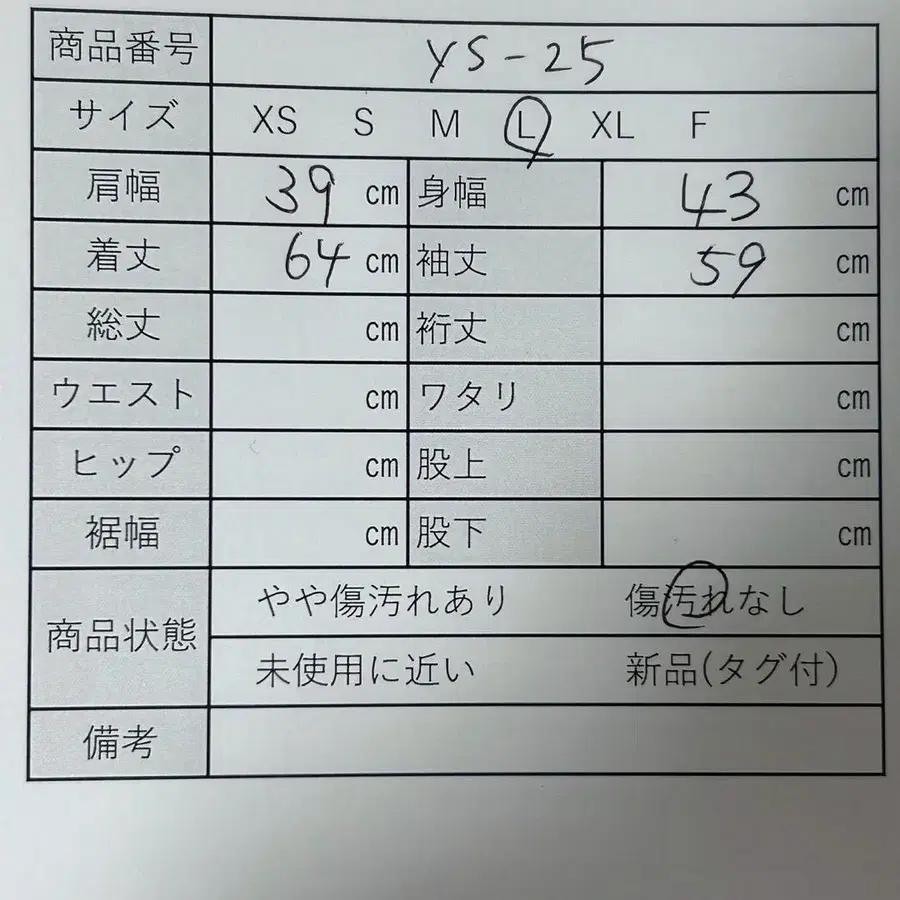 商品番号 YS-25
サイズ XS S M L XL F
肩幅 39 cm 身幅 43 cm
着丈 64 cm 袖丈 59 cm
総丈 cm 裄丈 cm
ウエスト cm ワタリ cm
ヒップ cm 股上 cm
裾幅 cm 股下 cm
商品状態 やや傷汚れあり 傷汚れなし
未使用に近い 新品(タグ付)
備考